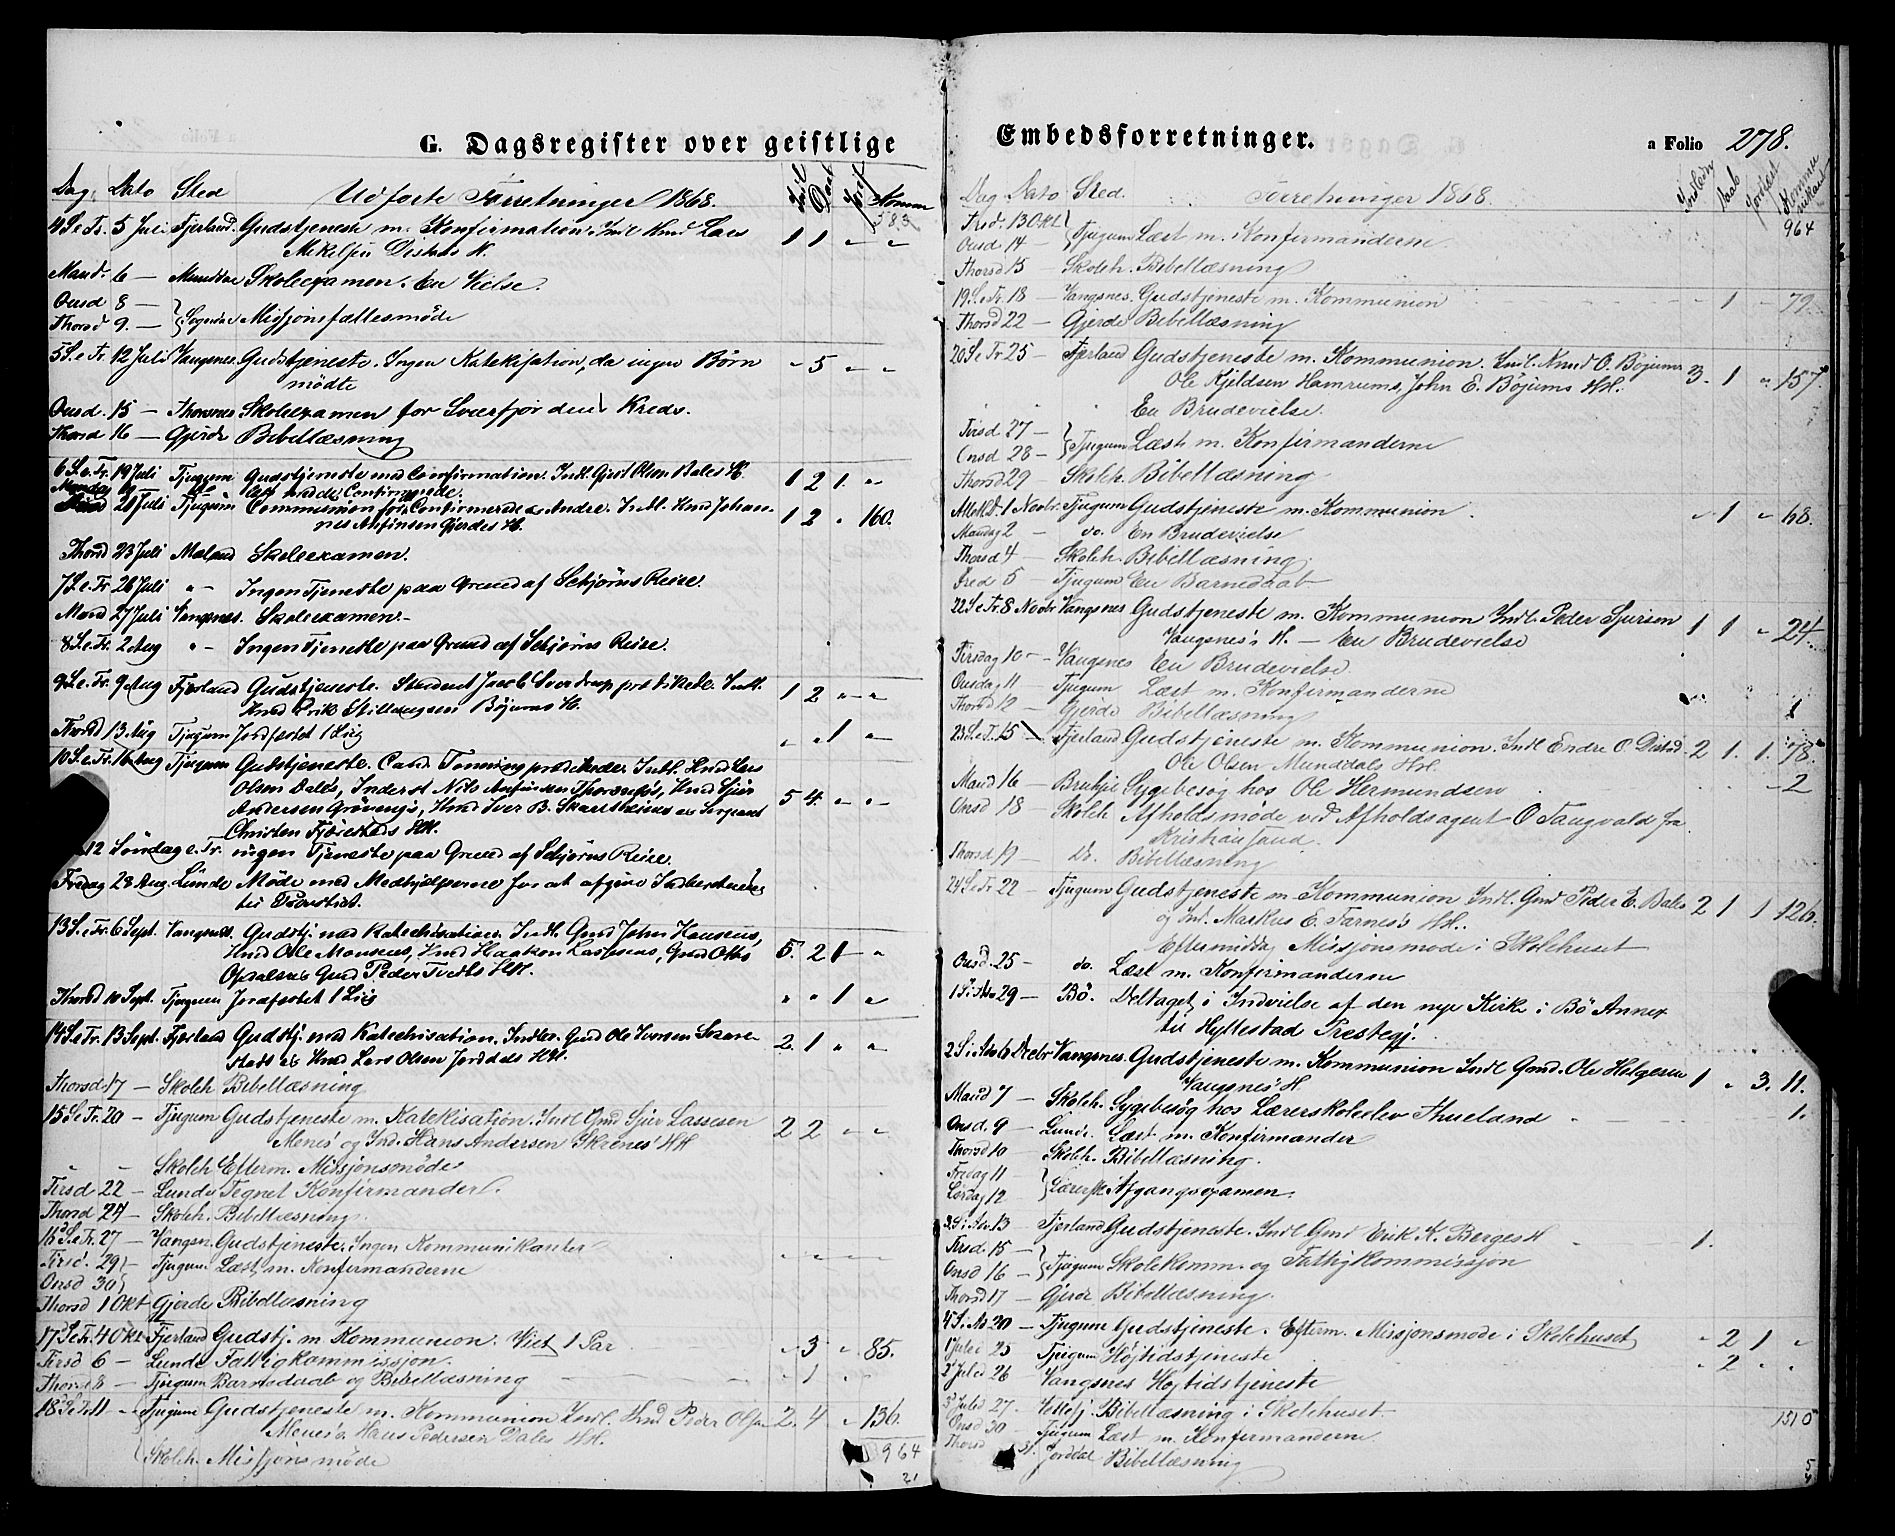 G. Dagsregister over geistlige
Dag. Dato Sted Udførte Forretninger 1868. Indl Daab Jordf Komm
583
4 S. e Tr. 5 Juli Fjerland. Gudstjeneste m. Konfirmation. Indl Knud Lars 1 1 " "
Mikelsen Distads H.
Mand. 6 — Munddal Skoleexamen. En Vielse.
Onsd 8 —
Thorsd 9. — Sogndal Missjonsfællesmøde
5 S. e Tr. 12 Juli Vangsnes Gudstjeneste. Ingen Katekisation, da ingen Børn " 5 " "
mødte
Onsd. 15 — Thorsnes Skoleexamen for Sværefjordens Kreds.
Thorsd 16 — Gjerde Bibellæsning
6 S. e. Tr. 19 Juli Tjugum Gudstjeneste med Confirmation. Indl. Gjert Olsen Bales H. 1 2 1. "
Mandag 20
21 Juli Tjugum Communion for Confirmerede og Andre. Indl. Knud Johan- 1 2 " 160.
nes Anfinsen Gjerdes H.
Thorsd 23 Juli Meland Skoleexamen.
7 S. e Tr 26 Juli " - Ingen Tjeneste paa Grund af Schjørns Reise.
Mand 27 Juli Vangsnes. Skoleexamen.-
8 S. e. Tr. 2 Aug " - Ingen Tjeneste paa Grund af Schjørns Reise.
9 S. e Tr. 9 Aug Fjerland Gudstjeneste. Student Jacob Sverdrup prædikede. Indl. 1 2 " "
Knud Erik Bøjums H.
Thorsd 13 Aug Tjugum Jordfæstet 1 Liig " " 1 "
10 S. e Tr. 16 Aug Tjugum Gudstjeneste. Cand. prædikede. Indl. Knud Lars
Olsen Dales, Inderst Nils Anfinsen Thorsnes, Knud Sjur
Andersen Grøvens, Knud Iver B. og Sergeant 5 4. " "
Christen HH.
12 Søndag e. Tr. ingen Tjeneste paa Grund af Schjørns Reise.
Fredag 28 Aug. Lunde Møde med Medhjelperne for at afgive Indberetning
til Provstiet.
13 S. e Tr. 6 Sept. Vangsnes. Gudstj med Katechisation. Indl. Gmd John Hansens,
Knud Ole Monsens, Knud Haakon Lassesens, Gmd Ottos 5. 2 1 "
Gmd Peder Tvedts HH.
Thorsd 10 Sept. Tjugum Jordfæstet 1 Liig " " 1 "
14 S. e Tr. 13 Sept. Fjerland Gudstj med Katechisation. Indl. Gmd Ole Iversen Skare- 2. 1 " "
stads og Knud Lars Olsen Jorddals HH.
Thorsd. 17 — Skoleh Bibellæsning
15 S. e Tr. 20 — Tjugum Gudstjeneste m. Katekisation. Indl Gmd Sjur Lassesen 2 2 " "
Menes og Ind. Hans Andersen Skrenes HH
" " Skoleh Efterm. Missjonsmøde
Tirsd 22 — Lunde Tegnet Konfirmander.
Thorsd 24 — Skoleh. Bibellæsning.
16 S. e Tr. 27 — Vangsn. Gudstjeneste. Ingen Kommunikanter " " " "
Tirsd. 29 — Tjugum Læst m. Konfirmanderne
Onsd 30
Thorsd 1 Okt Gjerde Bibellæsning
17 S. e Tr. 4 Okt Fjerland Gudstj. m Kommunion. Viet 1 Par " 3 " 85.
Tirsd 6 — Lunde Fattigkommissjon.
Thorsd 8 — Tjugum Barnedaab og Bibellæsning " 1 " "
18 S. e Tr. 11 — Tjugum Gudstjeneste m. Kommunion Indl. Knd Peder Olsen 2. 4 " 136.
Menes og Hans Pedersen Dales HH.
Skoleh. Missjonsmøde
964
21
Embedsforretninger. a Folio 278.
Dag Dato Sted. Forretninger 1868. Indledn Daab Jordfæst Kommunikant
Tirsd. 13 Okt 964
Onsd 14 — Tjugum Læst m. Konfirmanderne
Thorsd 15 — Skoleh. Bibellæsning
19 S. e Tr. 18 — Vangsnes. Gudstjeneste m. Kommunion 1 — 79.
Thorsd 22 — Gjerde Bibellæsning
20 S. e Tr 25 — Fjerland Gudstjeneste m. Kommunion. Indl. Knud O. Bøjums
Ole Kjeldsen Hamrums, John E. Bøjums HH. 3. 1 " 157.
En Brudevielse.
Tirsd 27 —
Onsd 28 — Tjugum Læst m. Konfirmanderne
Thorsd 29 — Skoleh. Bibellæsning
AlleH. D. 1 Novbr. Tjugum Gudstjeneste m. Kommunion " 1 " 68.
Mandag 2 — do. En Brudevielse
Thorsd 4 — Skoleh. Bibellæsning
Fred 5 — Tjugum En Barnedaab
22 S. e Tr. 8 Novbr Vangsnes Gudstjeneste m. Kommunion Indl. Peder Sjursen 1 1 " 24.
Vangsnes's H. — En Brudevielse
Tirsdag 10 — Vangsnes En Brudevielse
Onsdag 11 — Tjugum Læst m. Konfirmanderne
Thorsd 12 — Gjerde Bibellæsning 1
23 S. e Tr. 15 Fjerland Gudstjeneste m. Kommunion. Indl Endre O Distad 2 1. 1. 78.
Ole Olsen Munddals HH.
Mand 16 — Sygebesøg hos Ole Hermundsen — 2
Onsd 18 Skoleh Afholdsmøde ved Afholdsagent O Tangvald fra
Kristiansand.
Thorsd 19 — Do. Bibellæsning
24 S. e Tr 22 — Tjugum Gudstjeneste m. Kommunion Indl. Gmd Peder E. Bales 2 1 1 126.
og Ind. Markus E. Farnes's HH.
Eftermiddag Missjonsmøde i Skolehuset
Onsd. 25 — do. Læst m. Konfirmanderne
1 S. i Adv 29 — Bø. Deltaget i Indvielse af den nye Kirke i Bø Annex
til Hyllestad Prestegj.
2 S. i Adv 6 Decbr Vangsnes. Gudstjeneste m. Kommunion Indl Gmd. Ole Helgesen 1 " 3. 11.
Vangsnes's H.
Mand 7 — Skoleh. Sygebesøg hos Lærerskoleelev Thueland 1.
Onsd. 9 — Lunde. Læst m. Konfirmander
Thorsd 10 — Skoleh. Bibellæsning.
Fredag 11
Lørdag 12 Lærersk. Afgangsexamen.
3 S. i Adv. 13 — Fjerland Gudstjeneste. Indl Gmd Erik K. Berges H 1.
Tirsd. 15 —
Onsd 16 — Tjugum Skolekomm. og Fattigkommissjon
Thorsd 17 — Gjerde Bibellæsning.
4 S. i Ad 20 — Tjugum Gudstjeneste. Efterm. Missjonsmøde i Skolehuset " 2 1 "
1 Juled 25 Tjugum Højtidstjeneste " 2 " "
2 Juled 26 — Vangsnes Højtidstjeneste
3 Juled 27. — Vettlefj. Bibellæsning i Skolehuset.
Onsd 30 — Tjugum Læst m. Konfirmanderne 1510
Thorsd 31. Jorddal Bibellæsning